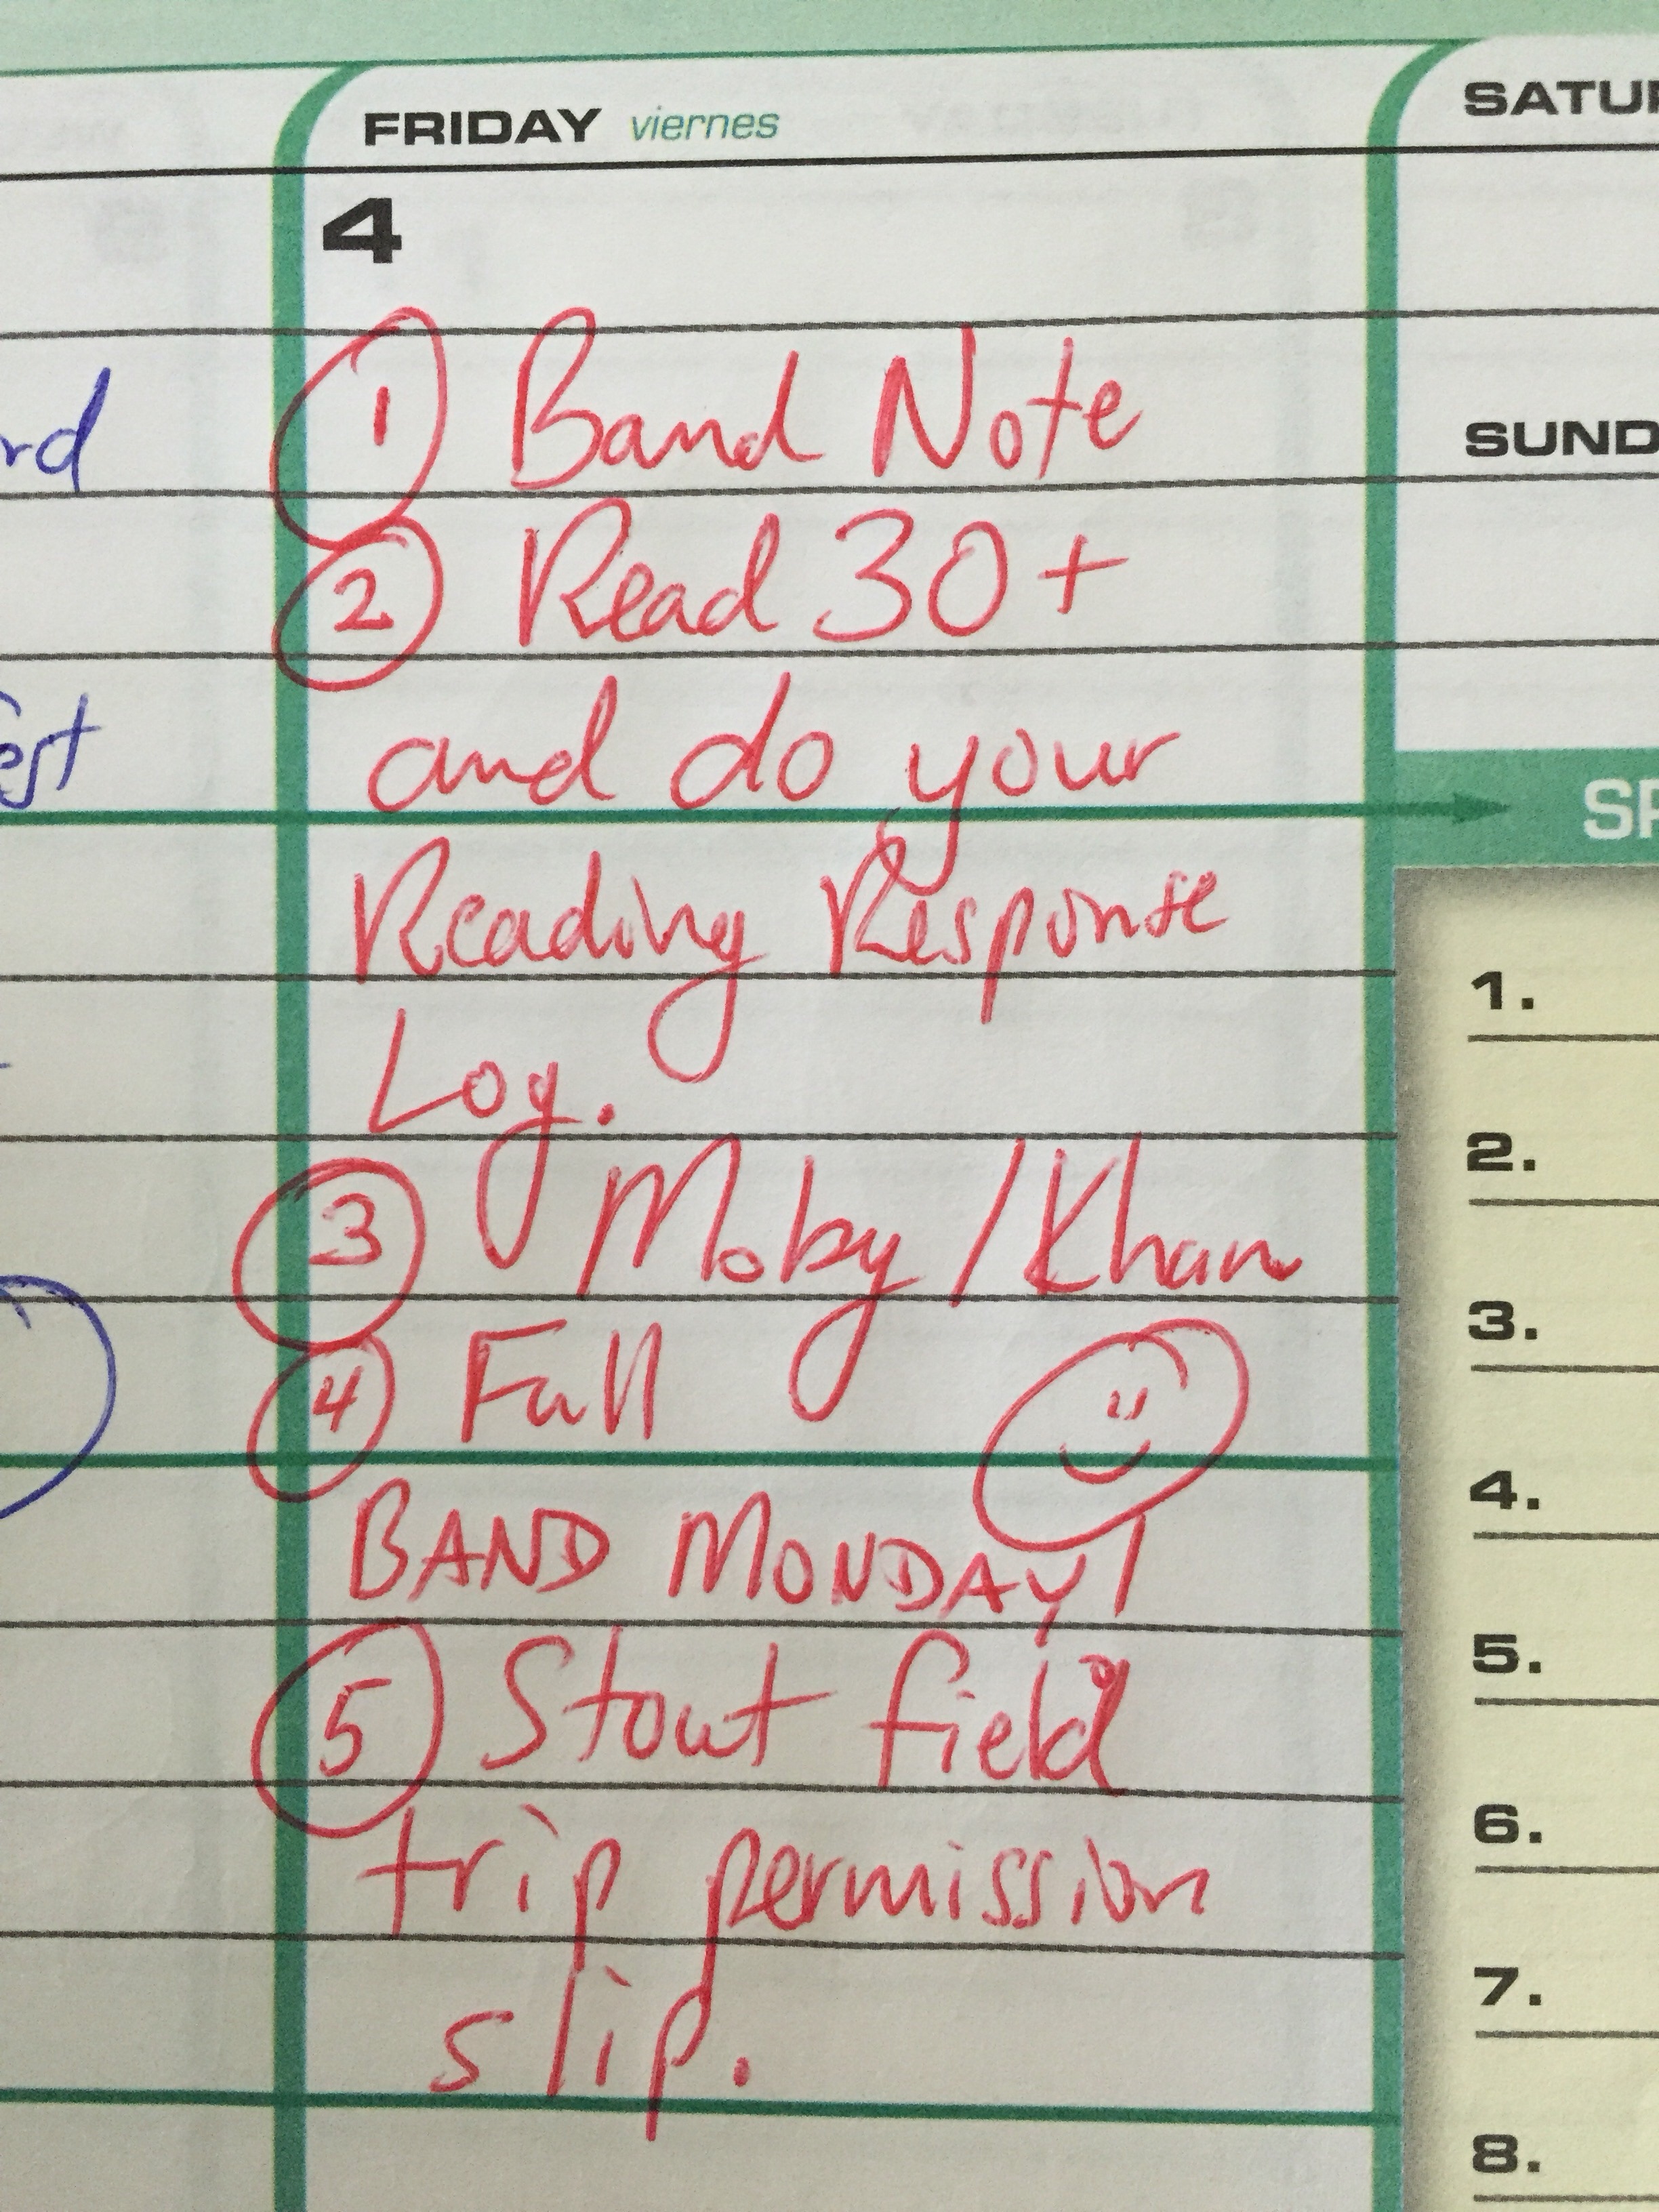 FRIDAY viernes
4
① Band Note
② Read 30+
and do your
Reading Response
Log.
③ Moby/Khan
④ Full
BAND MONDAY!
⑤ Stout field
trip permission
slip.
SATUR
SUND
SP
1.
2.
3.
4.
5.
6.
7.
8.
rd
est